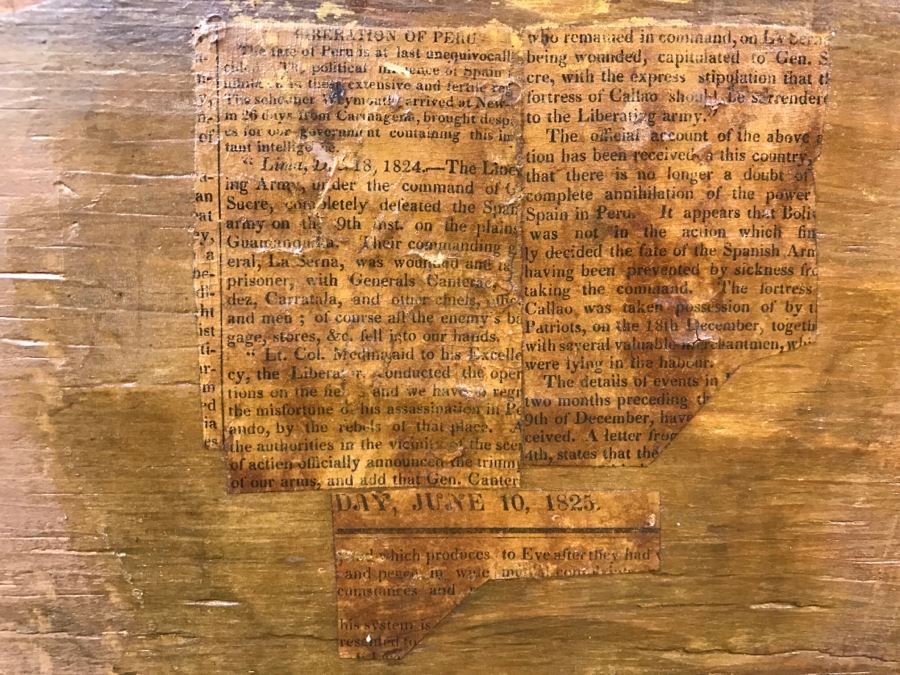 LIBERATION OF PERU
The fate of Peru is at last unequivocall
The political influence of Spain
extensive and fertile re
The schooner Weymouth arrived at New
in 26 days from Cartnagena, brought desp
es for our government containing this im
tant intellige
" Lima, Dec 18, 1824.—The Libe
ing Army, under the command of G
Sucre, completely defeated the Span
army on the 9th inst. on the plains
Their commanding g
eral, La Serna, was wounded and
prisoner, with Generals Canterac,
dez, Carratala, and other chiefs, office
and men ; of course all the enemy's ba
gage, stores, &c. fell into our hands.
" Lt. Col. Medina, aid to his Excelle
cy, the Liberator, conducted the oper
tions on the field and we have to regr
the misfortune of his assassination in
ando, by the rebels of that place. A
the authorities in the vicinity of the sce
of action officially announced the trium
of our arms, and add that Gen. Canter
who remained in command, on La Serna
being wounded, capitulated to Gen. S
cre, with the express stipulation that t
fortress of Callao should be surrendere
to the Liberating army."
The official account of the above a
tion has been received in this country,
that there is no longer a doubt of
complete annihilation of the power
Spain in Peru. It appears that Boliv
was not in the action which fin
ly decided the fate of the Spanish Arm
having been prevented by sickness fro
taking the command. The fortress
Callao was taken possession of by t
Patriots, on the 18th December, togeth
with several valuable merchantmen, whi
were lying in the habour.
The details of events in
two months preceding th
9th of December, have
ceived. A letter from
4th, states that the
DAY, JUNE 10, 1825.
which produces to Eve after they had
and peace, in wise
cumstances and
his system is
resented to